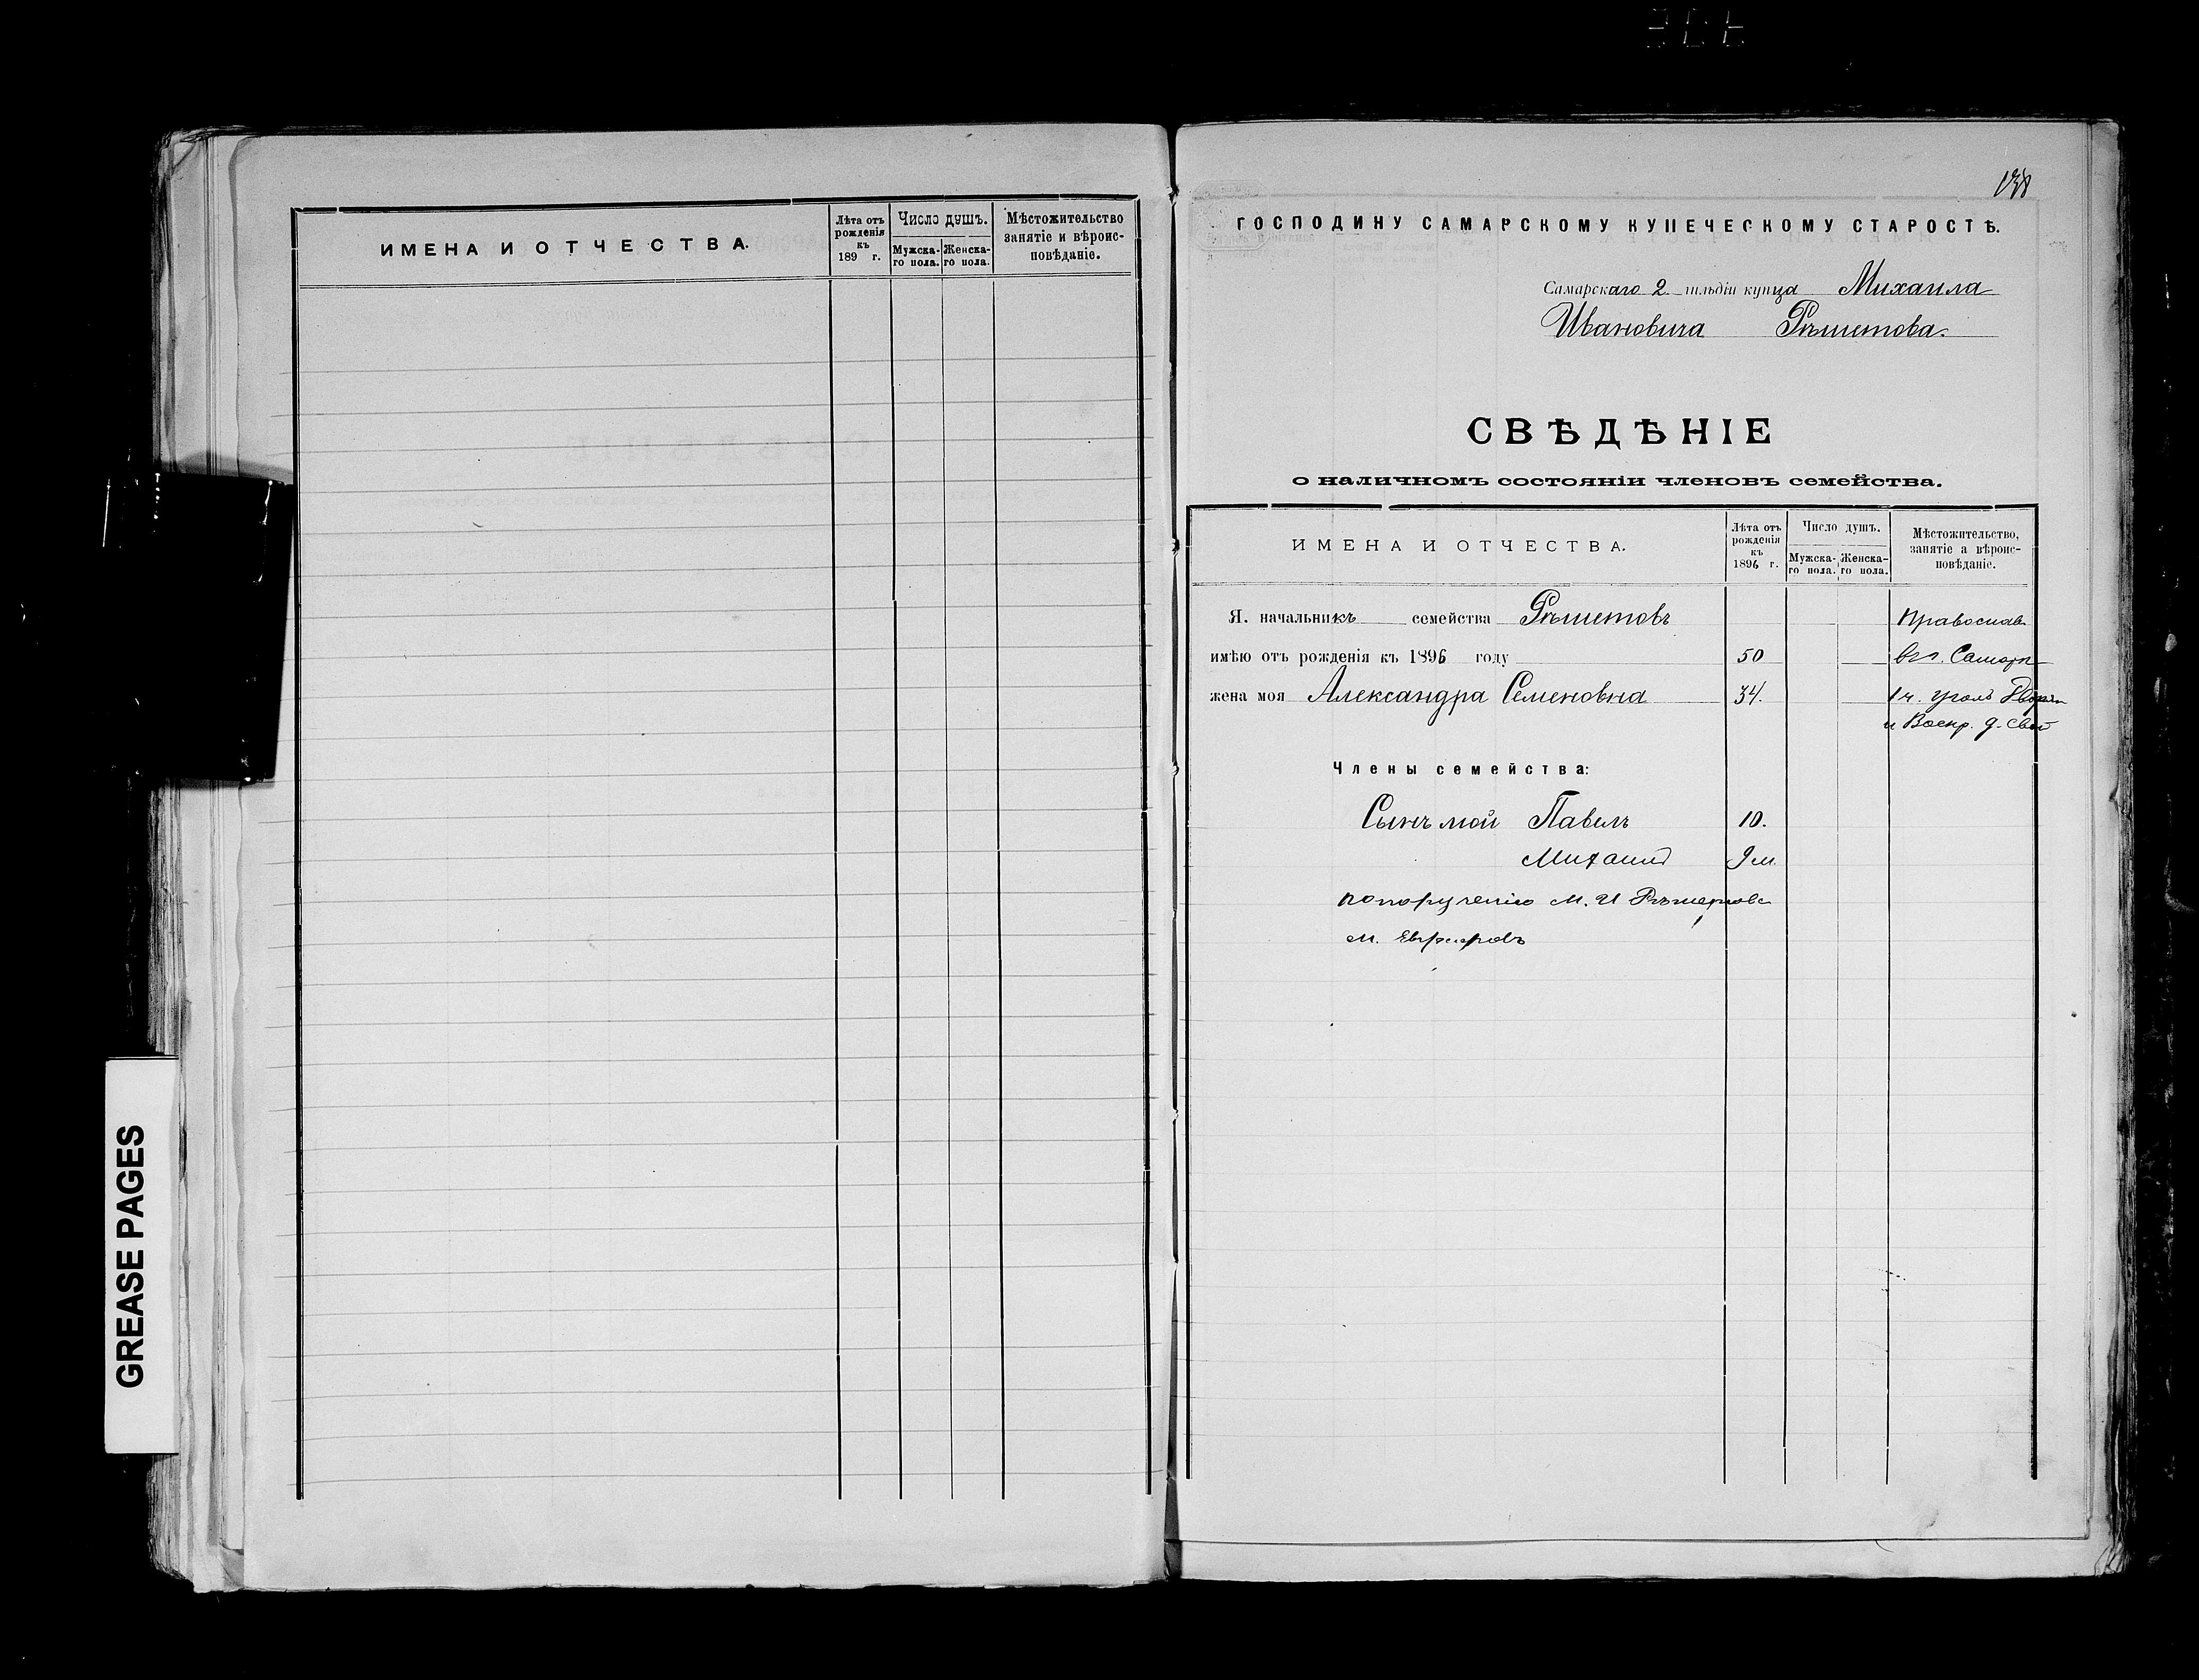 ИМЕНА И ОТЧЕСТВА.
Лѣта отъ рожденія къ 189 г.
Число душъ.
Мужска-го пола.
Женска-го пола.
Мѣстожительство занятіе и вѣроис-повѣданіе.
GREASE PAGES
138
ГОСПОДИНУ САМАРСКОМУ КУПЕЧЕСКОМУ СТАРОСТѢ.
Самарскаго 2 гильдіи купца Михаила
Ивановича Рѣшетова.
СВѢДѢНІЕ
о наличномъ состояніи членовъ семейства.
ИМЕНА И ОТЧЕСТВА.
Лѣта отъ рожденія къ 1896 г.
Число душъ.
Мужска-го пола.
Женска-го пола.
Мѣстожительство, занятіе а вѣроис-повѣданіе.
Я. начальникъ семейства Рѣшетовъ Православ
имѣю отъ рожденія къ 1896 году 50 въ г. Самарѣ
жена моя Александра Семеновна 34. 1 ч. уголъ Дворян
и Воскр. д. свой
Члены семейства:
Сынъ мой Павелъ 10.
Михаилъ 9 м.
по порученію М. И Рѣшетова
М.